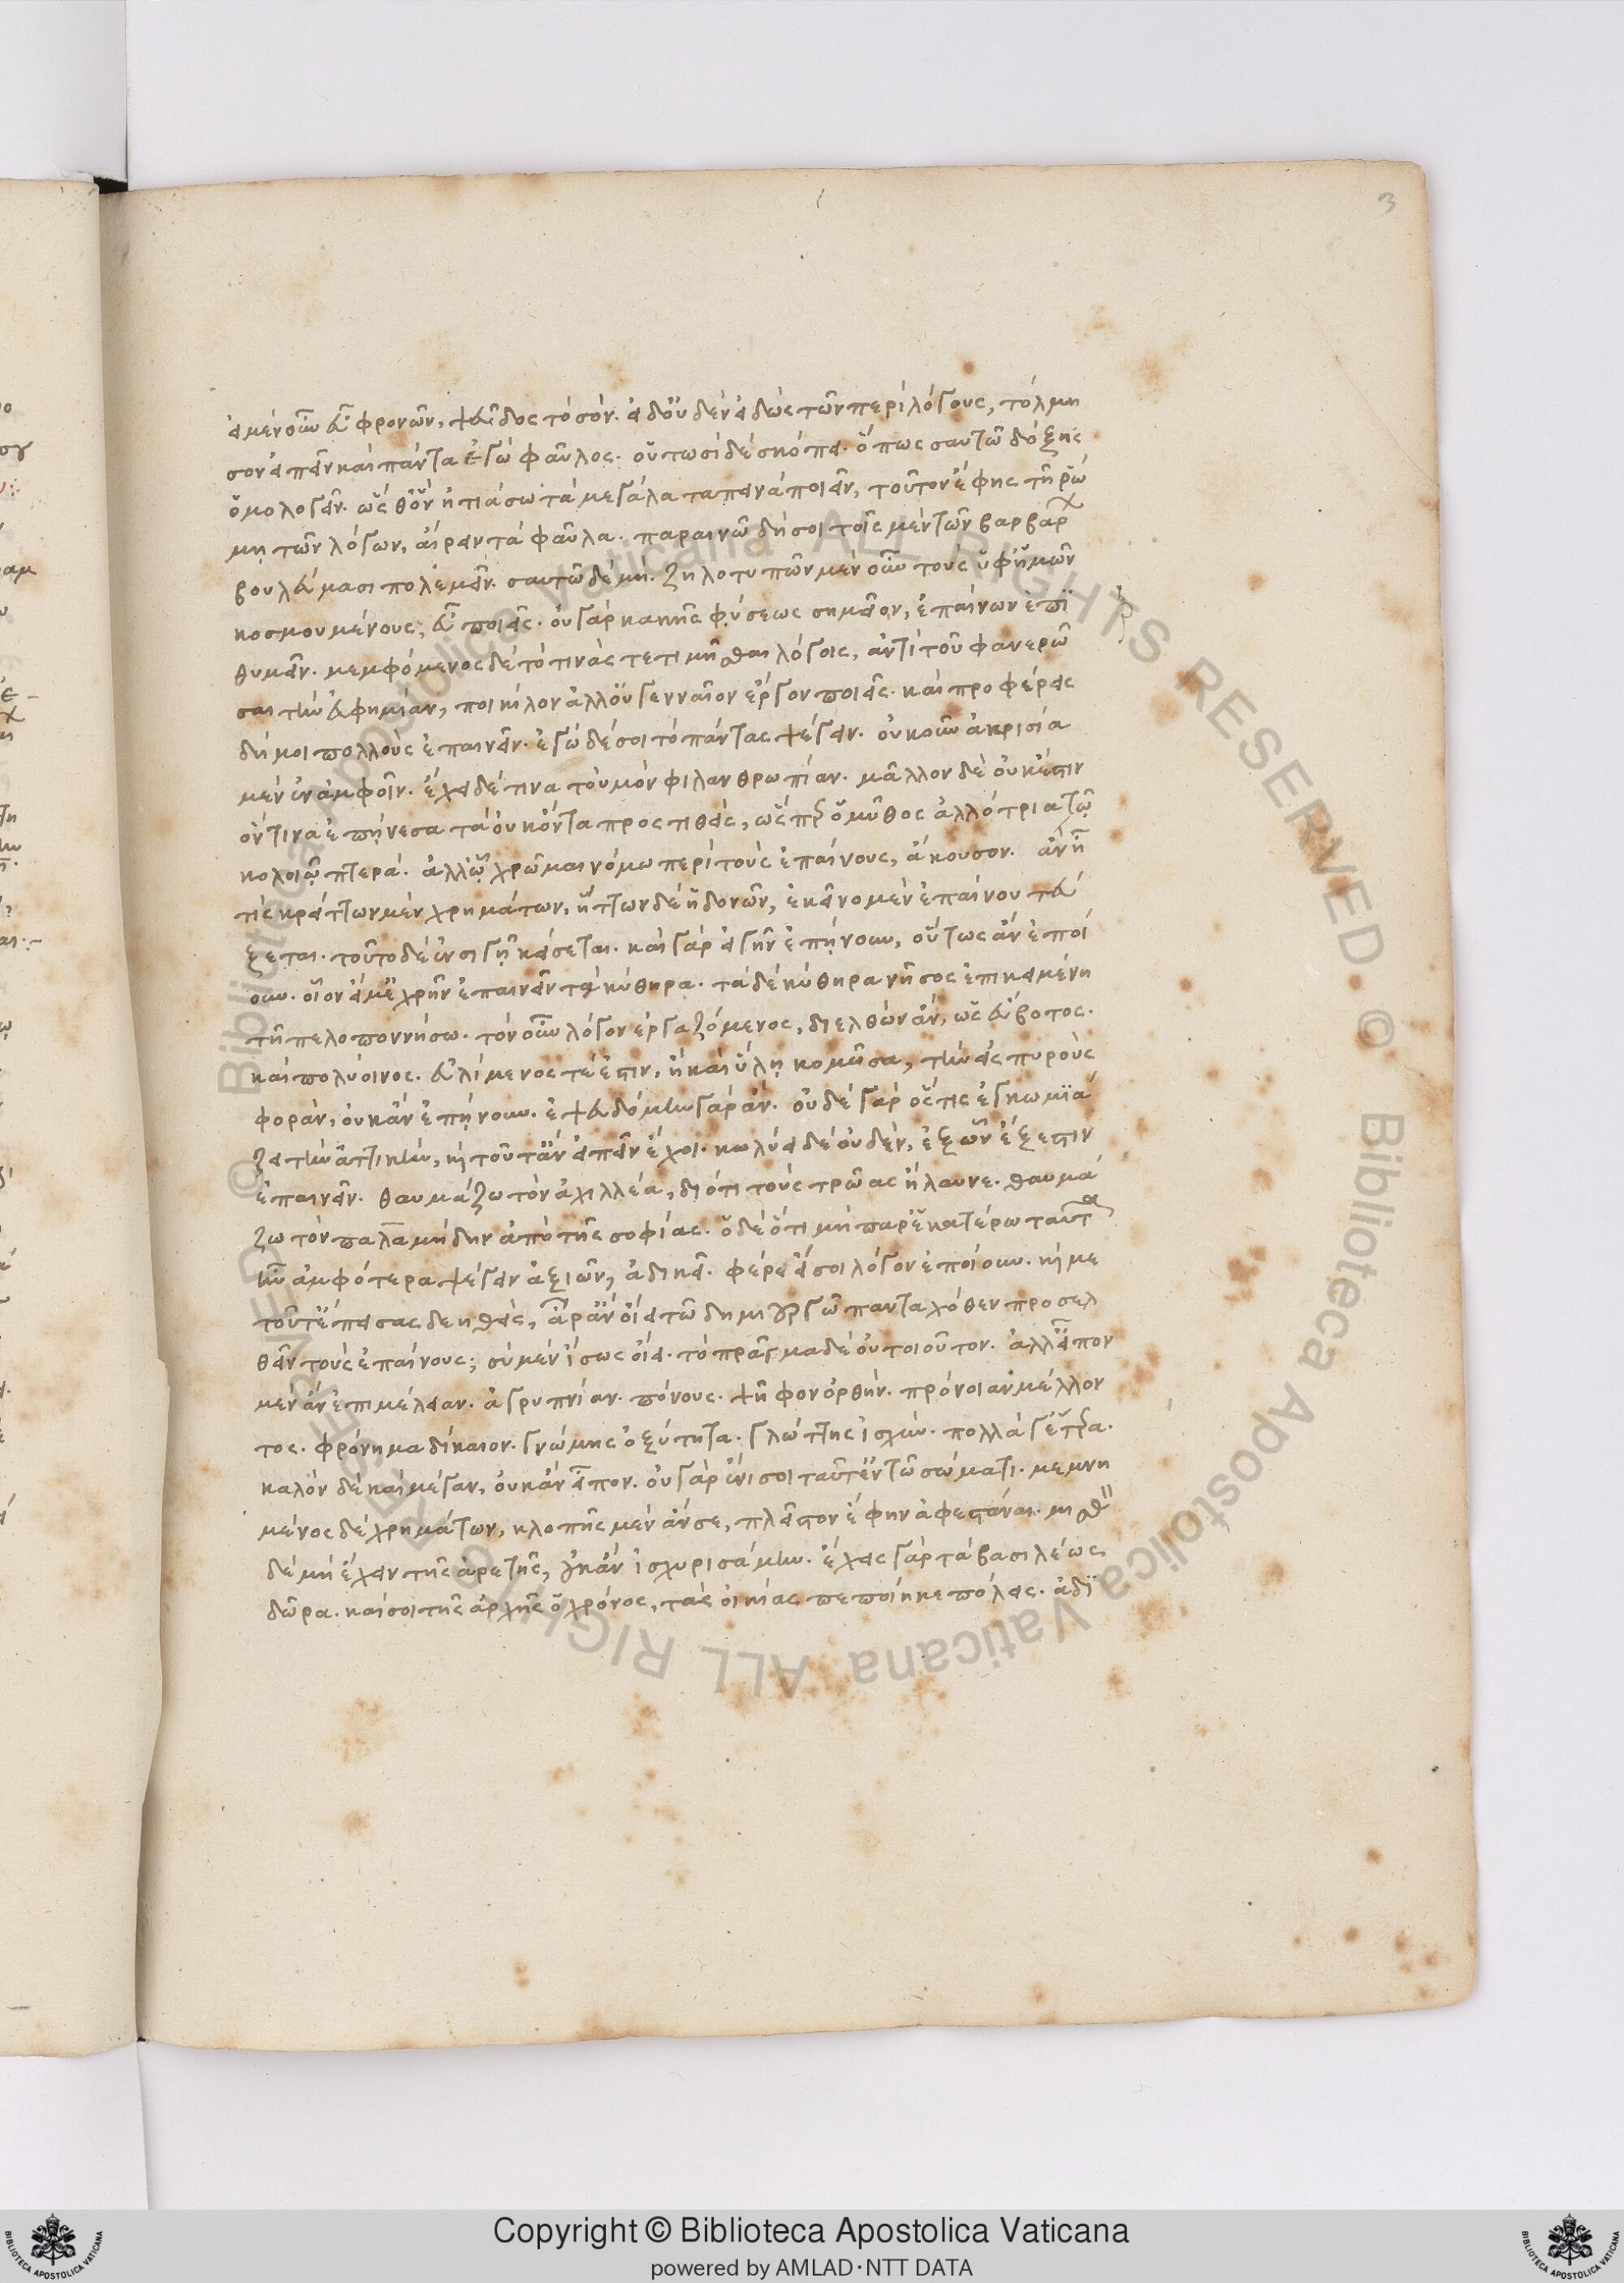 3
εἰ μὲν οὖν εὖ φρονῶν, ψεῦδος τὸ σόν. εἰ δ' οὐδὲν εἰδὼς τῶν περὶ λόγους, τόλμη
σον εἰπεῖν καὶ πάντα ἐγὼ φαῦλος. οὑτωσὶ δὲ σκόπει. ὅπως σαυτῶ δόξης
ὁμολογεῖν. ὡς θ' ὃν ᾐτιάσω τὰ μεγάλα ταπεινὰ ποιεῖν, τοῦτον ἔφης τῆ ῥώ
μη τῶν λόγων, αἴρειν τὰ φαῦλα. παραινῶ δή σοι τοῖς μὲν τῶν βαρβάρ
βουλεύμασι πολεμεῖν. σαυτῶ δὲ μή. ζηλοτυπῶν μὲν οὖν τοὺς ὑφ' ἡμῶν
κοσμουμένους, εὖ ποιεῖς. οὐ γὰρ κακῆς φύσεως σημεῖον, ἐπαίνων ἐπι
θυμεῖν. μεμφόμενος δὲ τὸ τινὰς τετιμῆσθαι λόγοις, ἀντὶ τοῦ φανερῶ
σαι τὴν εὐφημίαν, ποικίλον ἀλλ' οὐ γενναῖον ἔργον ποιεῖς. καὶ προφέρεις
δή μοι πολλοὺς ἐπαινεῖν. ἐγὼ δέ σοι τὸ πάντας ψέγειν. οὐκοῦν ἀκρισία
μὲν ἐν ἀμφοῖν. ἔχει δέ τινα τοὐμὸν φιλανθρωπίαν. μᾶλλον δὲ οὐκ ἔστιν
ὅντινα ἐπήνεσα τὰ οὐκ ὄντα προστιθείς, ὥσπερ ὁ μῦθος ἀλλότρια τῶ
κολοιῶ πτερά. ἀλλ' ᾧ χρῶμαι νόμω περὶ τοὺς ἐπαίνους, ἄκουσον. ἂν ᾖ
τις κρείττων μὲν χρημάτων, ἥττων δὲ ἡδονῶν, ἐκεῖνο μὲν ἐπαίνου τεύ
ξεται. τοῦτο δὲ ἐν σιγῆ κείσεται. καὶ γὰρ εἰ γῆν ἐπήνουν, οὕτως ἂν ἐποί
ουν. οἷον εἰ με χρῆν ἐπαινεῖν τὰ κύθηρα. τὰ δὲ κύθηρα νῆσος ἐπικειμένη
τῆ πελοποννήσω. τὸν οὖν λόγον ἐργαζόμενος, διελθὼν ἂν, ὡς εὔβοτος.
καὶ πολύοινος. εὐλίμενός τέ ἐστιν, ἢ καὶ ὕλη κομῶσα, τὴν εἰς πυροὺς
φορὰν, οὐκ ἂν ἐπήνουν. ἐψευδόμην γὰρ ἄν. οὐδὲ γὰρ ὅστις ἐγκωμιά
ζει τὴν ἀττικὴν, καὶ τοῦτ' ἂν εἰπεῖν ἔχοι. κωλύει δὲ οὐδὲν, ἐξ ὧν ἔξεστιν
ἐπαινεῖν. θαυμάζω τὸν ἀχιλλέα, διότι τοὺς τρῶας ἤλαυνε. θαυμά
ζω τὸν παλαμήδην ἀπὸ τῆς σοφίας. ὁ δὲ ὅτι μὴ παρ' ἑκατέρω ταῦτα
ἦν ἀμφότερα ψέγειν ἀξιῶν, ἀδικεῖ. φέρε εἰ σοὶ λόγον ἐποίουν. καί με
τοῦτ' ἔπεισας δεηθείς, ἆρ' ἂν οἴει τῶ δημιουργῶ πανταχόθεν προσελ
θεῖν τοὺς ἐπαίνους; σὺ μὲν ἴσως οἴει. τὸ πρᾶγμα δὲ οὐ τοιοῦτον. ἀλλ' εἶπον
μὲν ἂν ἐπιμέλειαν. ἀγρυπνίαν. πόνους. ψῆφον ὀρθήν. πρόνοιαν μέλλον
τος. φρόνημα δίκαιον. γνώμης ὀξύτητα. γλώττης ἰσχύν. πολλά γ' ἕτερα.
καλὸν δὲ καὶ μέγαν, οὐκ ἂν εἶπον. οὐ γὰρ ἔνι σοι ταῦτ' ἐν τῶ σώματι. μεμνη
μένος δὲ χρημάτων, κλοπῆς μὲν ἄν σε, πλεῖστον ἔφην ἀφεστάναι. μισθὸν
δὲ μὴ ἔχειν τῆς ἀρετῆς, οὐκ ἂν ἰσχυρισάμην. ἔχεις γὰρ τὰ βασιλέως
δῶρα. καὶ σοι τῆς ἀρχῆς ὁ χρόνος, τὰς οἰκίας πεποίηκε πόλεις. ἀδι
© Biblioteca Apostolica Vaticana ALL RIGHTS RESERVED
Copyright © Biblioteca Apostolica Vaticana
powered by AMLAD·NTT DATA
BIBLIOTECA APOSTOLICA VATICANA